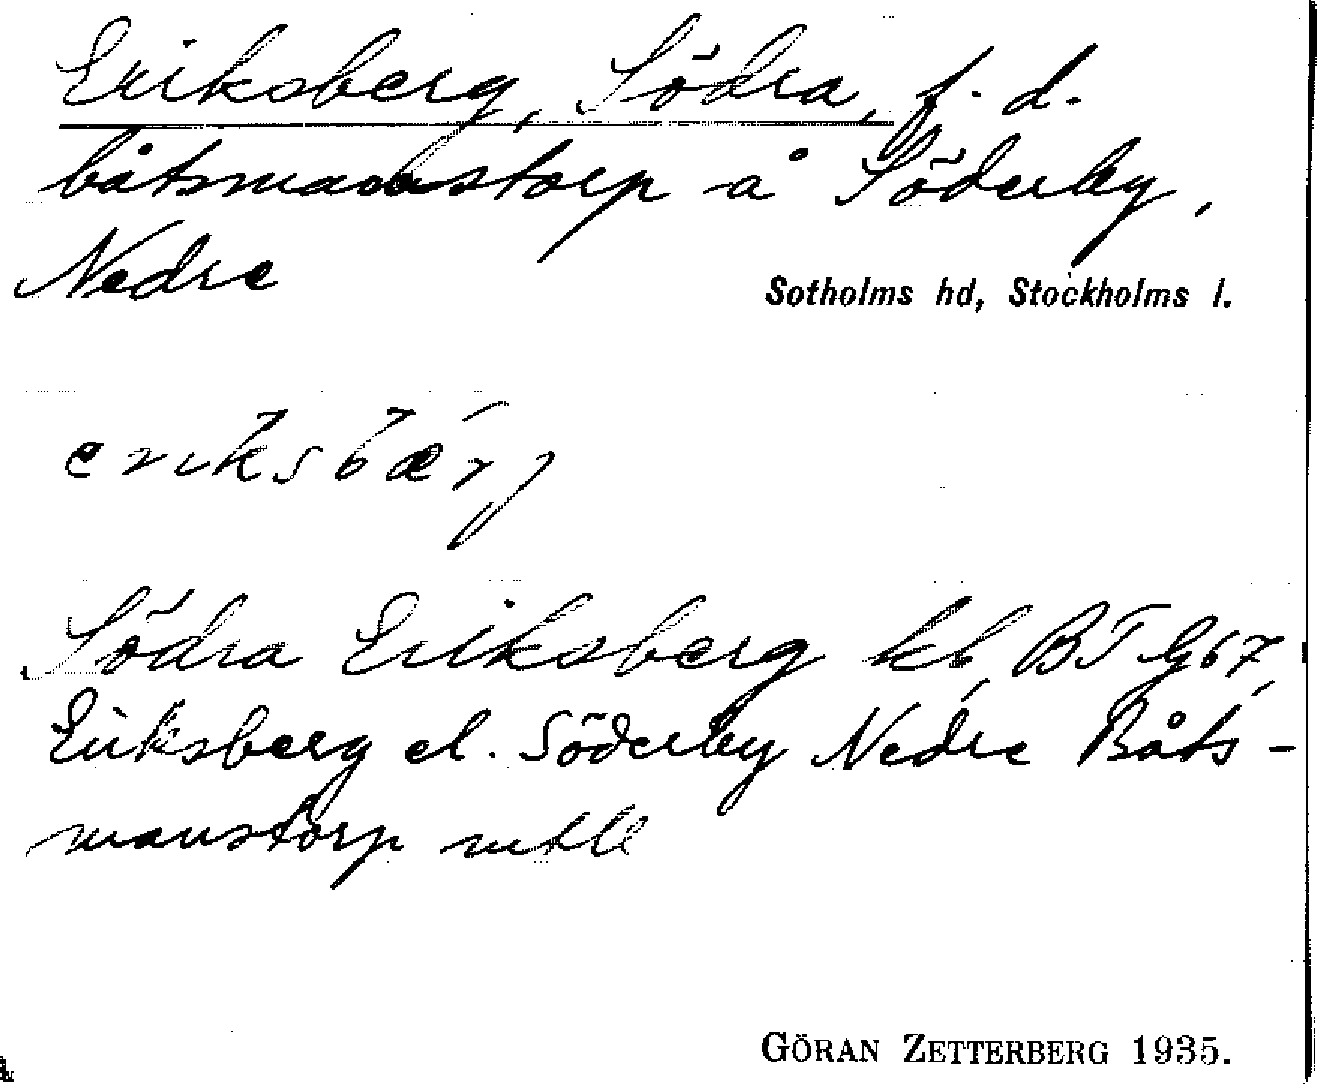 Eriksberg, Södra, f. d.
båtsmanstorp å Söderby,
Nedre
Sotholms hd, Stockholms l.
eriksbærj
Södra Eriksberg kb, BT G67,
Eriksberg el. Söderby Nedre Båts-
manstorp mtll
GÖRAN ZETTERBERG 1935.